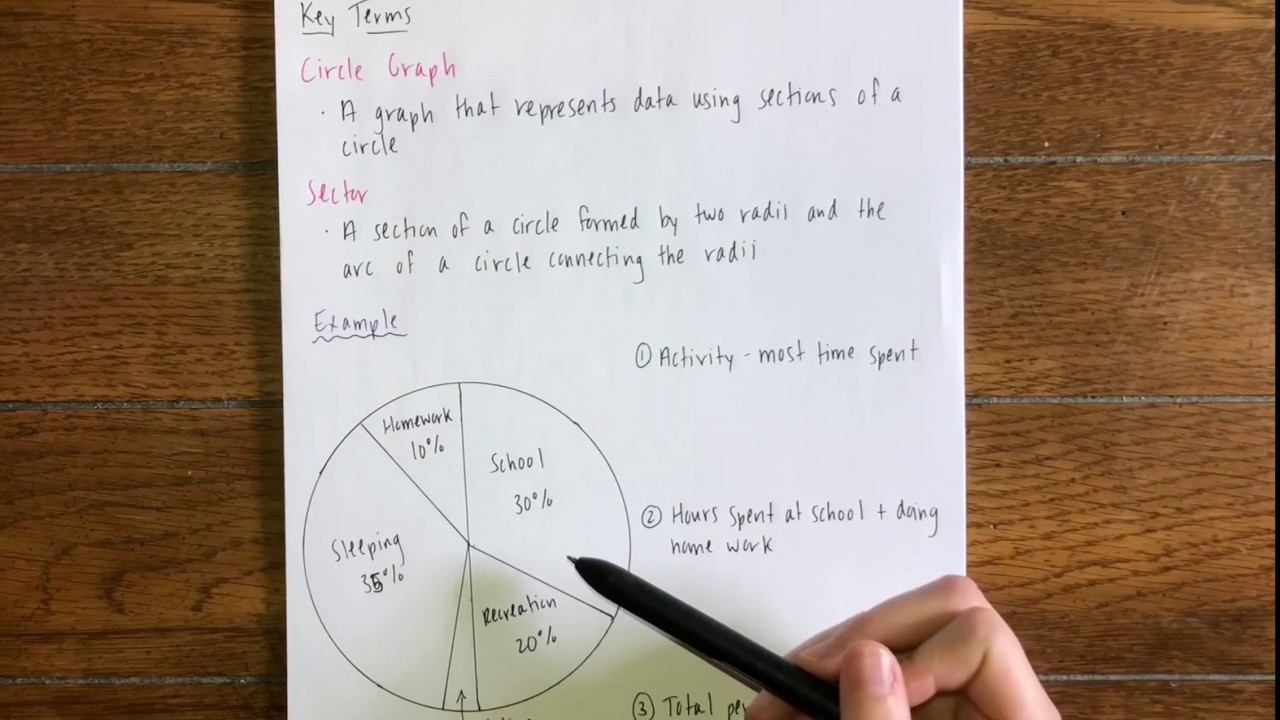 Key Terms
Circle Graph
· A graph that represents data using sections of a
circle
Sector
· A section of a circle formed by two radii and the
arc of a circle connecting the radii
Example
① Activity - most time spent
Homework
10%
School
30%
② Hours spent at school + doing
home work
Sleeping
35%
Recreation
20%
③ Total